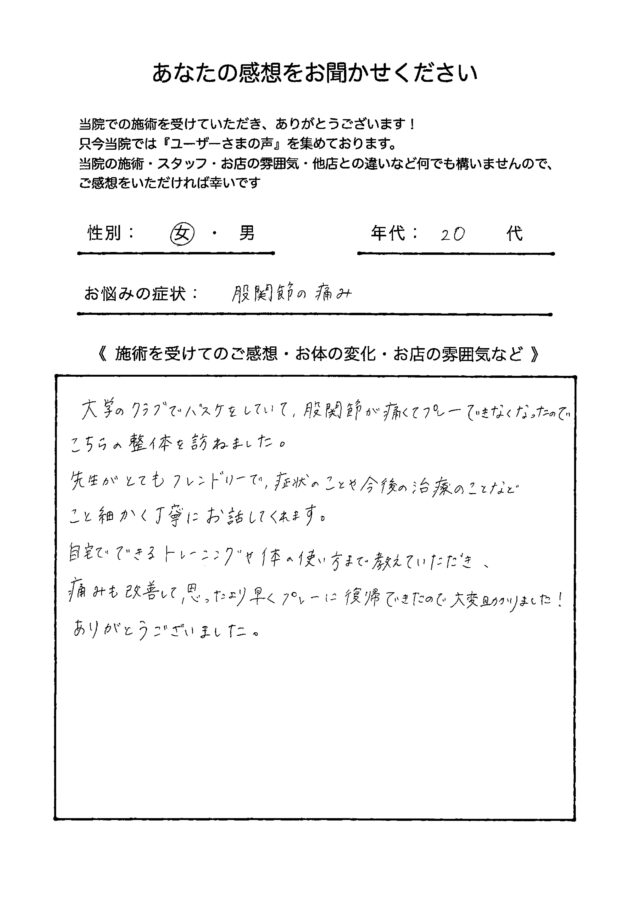 あなたの感想をお聞かせください
当院での施術を受けていただき、ありがとうございます！
只今当院では『ユーザーさまの声』を集めております。
当院の施術・スタッフ・お店の雰囲気・他店との違いなど何でも構いませんので、
ご感想をいただければ幸いです
性別： 女 ・ 男 年代： 20 代
お悩みの症状： 股関節の痛み
《 施術を受けてのご感想・お体の変化・お店の雰囲気など 》
大学のクラブでバスケをしていて、股関節が痛くてプレーできなくなったので
こちらの整体を訪ねました。
先生がとてもフレンドリーで、症状のことや今後の治療のことなど
こと細かく丁寧にお話してくれます。
自宅でできるトレーニングや体の使い方まで教えていただき、
痛みも改善して、思ったより早くプレーに復帰できたので大変助かりました！
ありがとうございました。